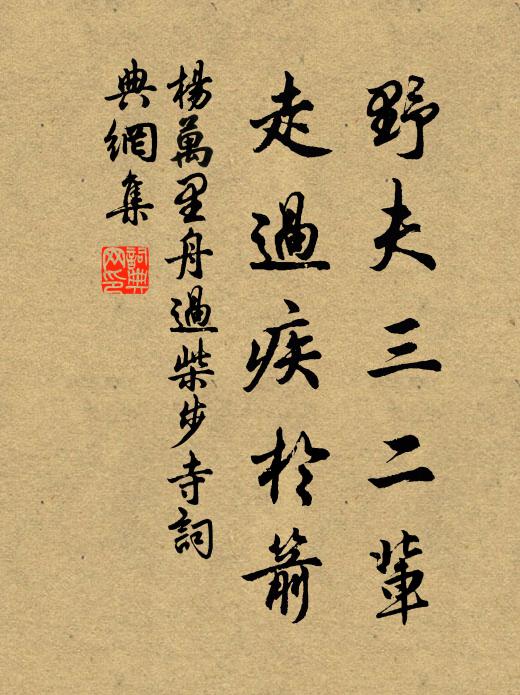 野夫三二輩
走過疾於箭
楊萬里舟過柴步寺詞
典網集
詞典
网印